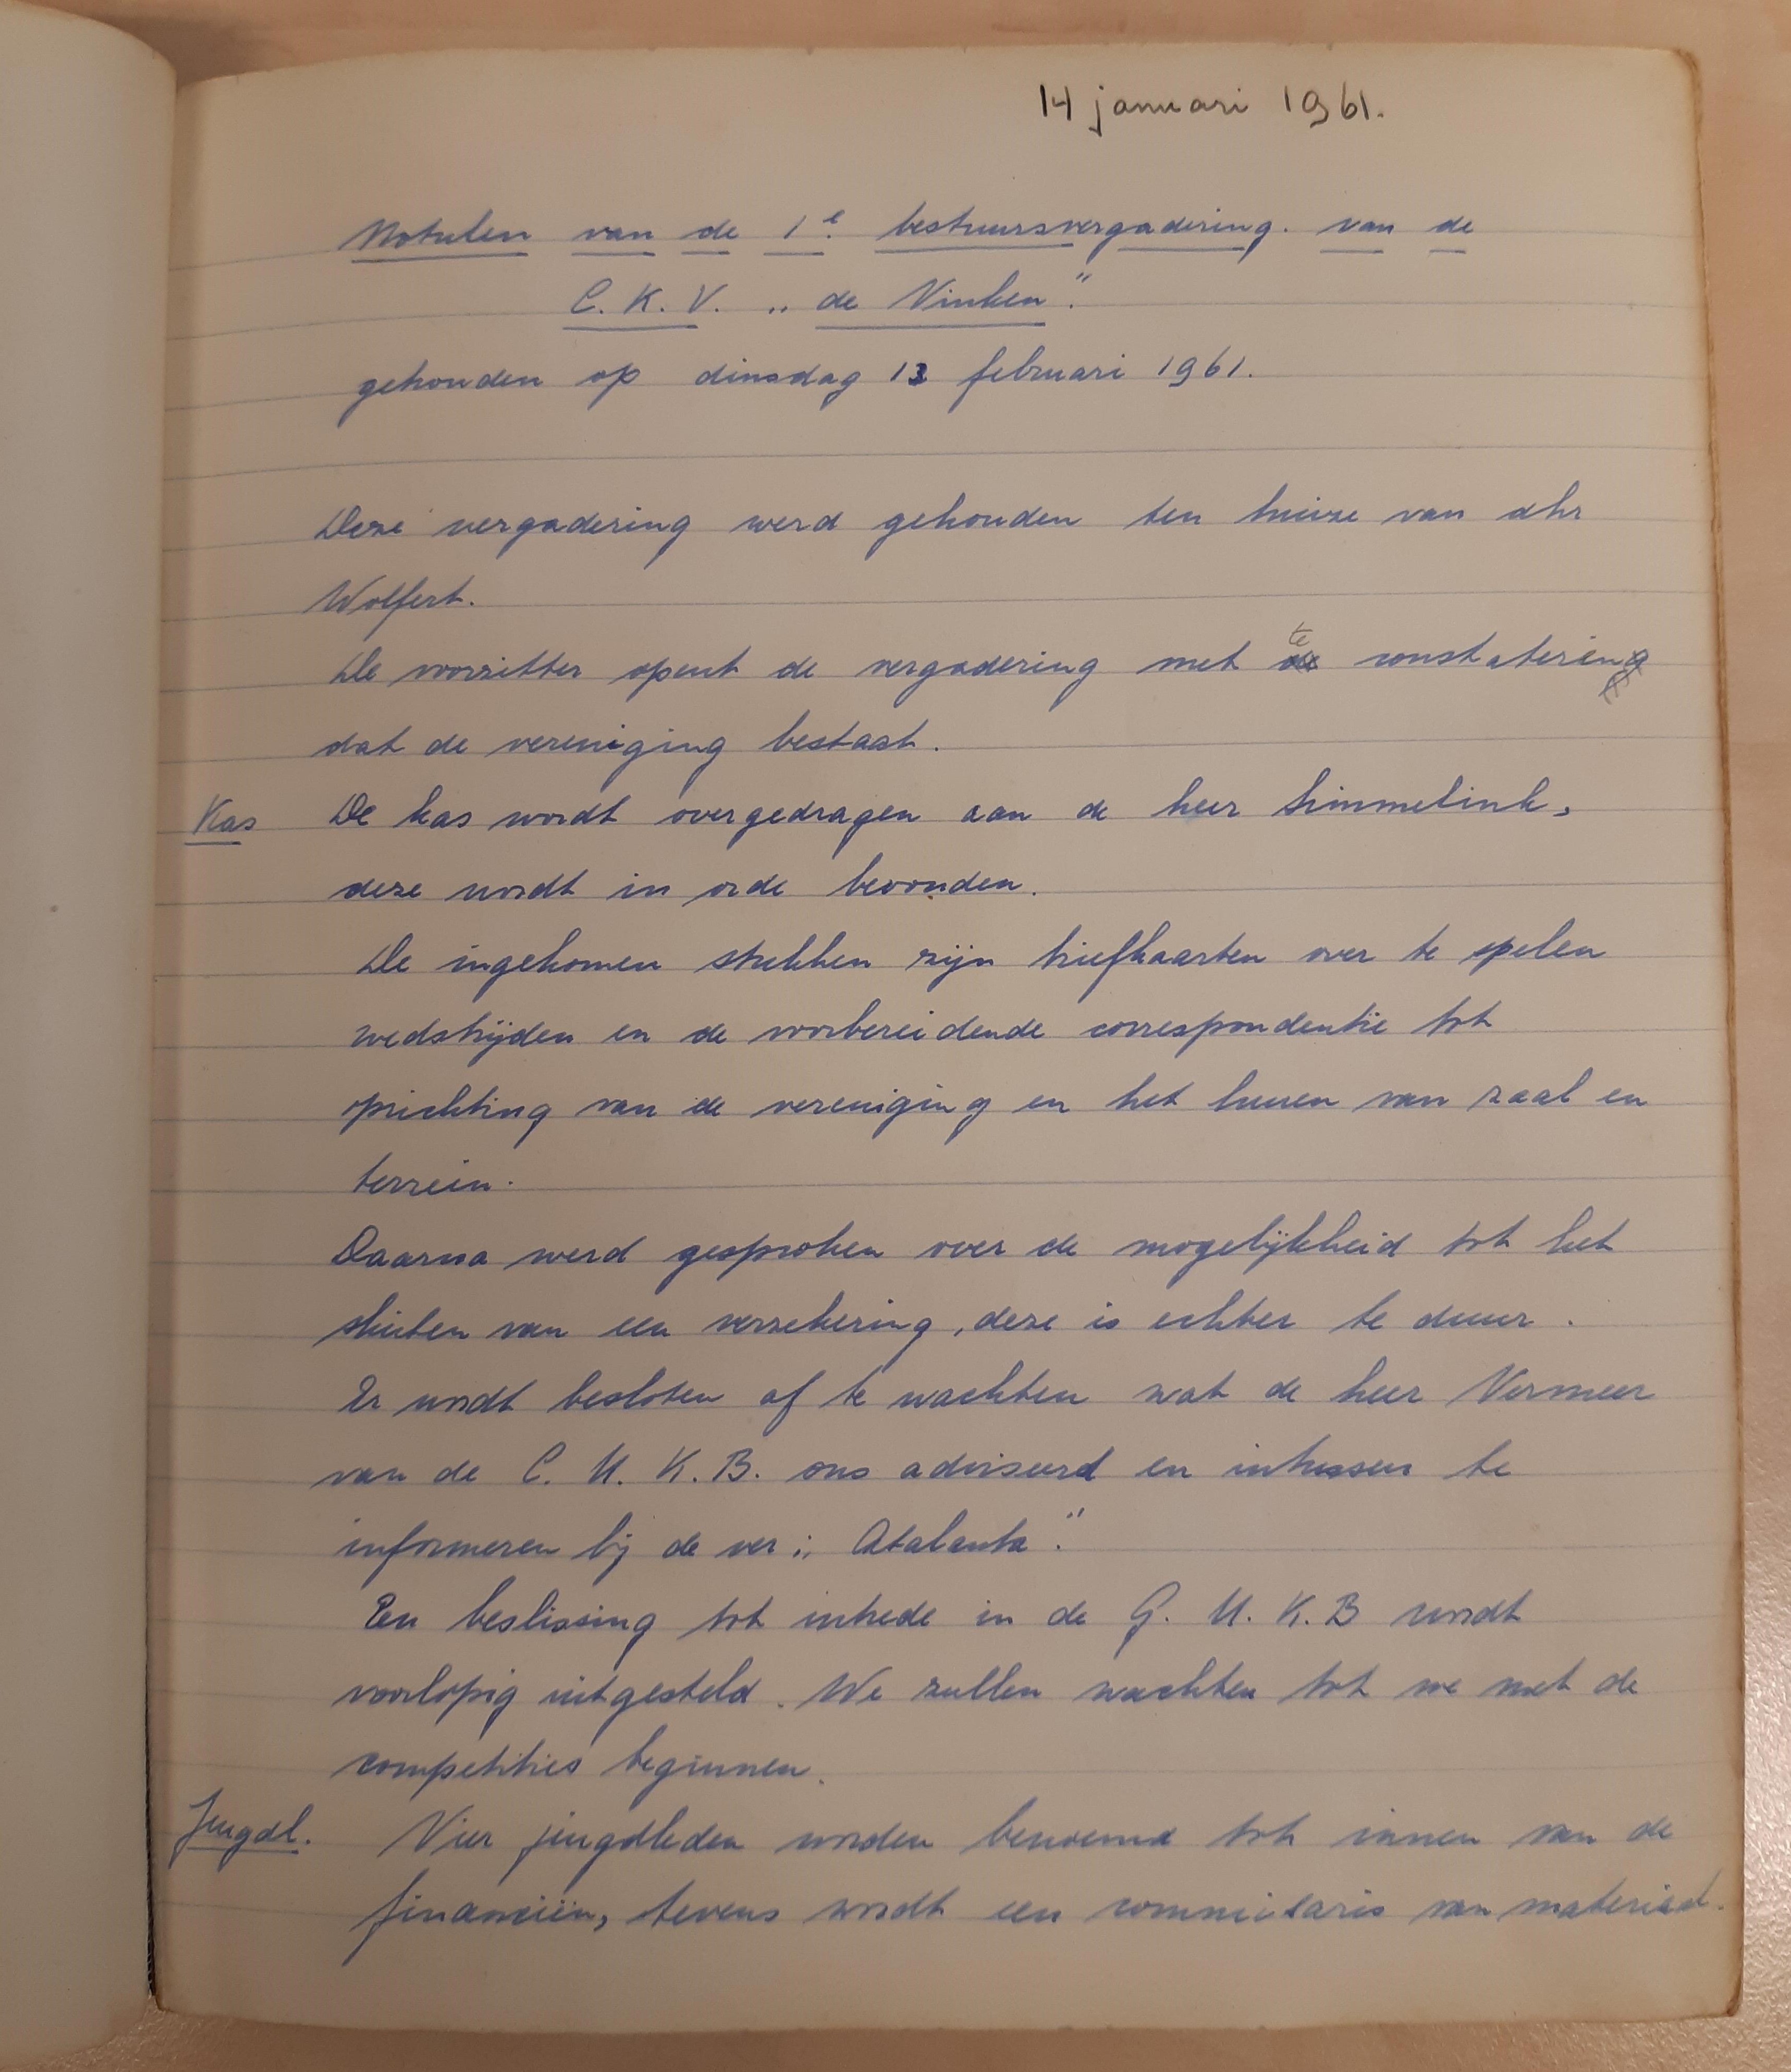 14 januari 1961.
Notulen van de 1e. bestuursvergadering. van de
C. K. V. „ de Vinken ".
gehouden op dinsdag 13 februari 1961.
Deze vergadering werd gehouden ten huize van dhr
Wolfert.
De voorzitter opent de vergadering met te constatering
dat de vereniging bestaat.
Kas De kas wordt overgedragen aan de heer Himmelink,
deze wordt in orde bevonden.
De ingekomen stukken zijn briefkaarten over te spelen
wedstrijden en de voorbereidende correspondentie tot
oprichting van de vereniging en het huren van zaal en
terrein.
Daarna werd gesproken over de mogelijkheid tot het
sluiten van een verzekering, deze is echter te duur.
Er wordt besloten af te wachten wat de heer Vermeer
van de C. U. K. B. ons adviseerd en intussen te
informeren bij de ver „ Atalanta ".
Een beslissing tot intrede in de G. U. K. B wordt
voorlopig uitgesteld. We zullen wachten tot we met de
competities beginnen.
Jeugdl. Vier jeugdleden worden benoemd tot innen van de
financiën, tevens wordt een commissaris van materiaal.